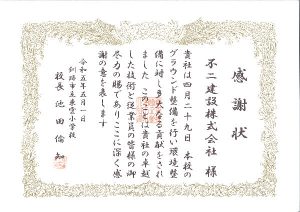 感謝状
不二建設株式会社 様
貴社は四月二十九日 本校の
グラウンド整備を行い環境整
備に対し多大なる貢献をされ
ました このことは貴社の卓越
した技術と従業員の皆様の御
尽力の賜でありここに深く感
謝の意を表します
令和五年五月一日
釧路市立東雲小学校
校長 池田倫